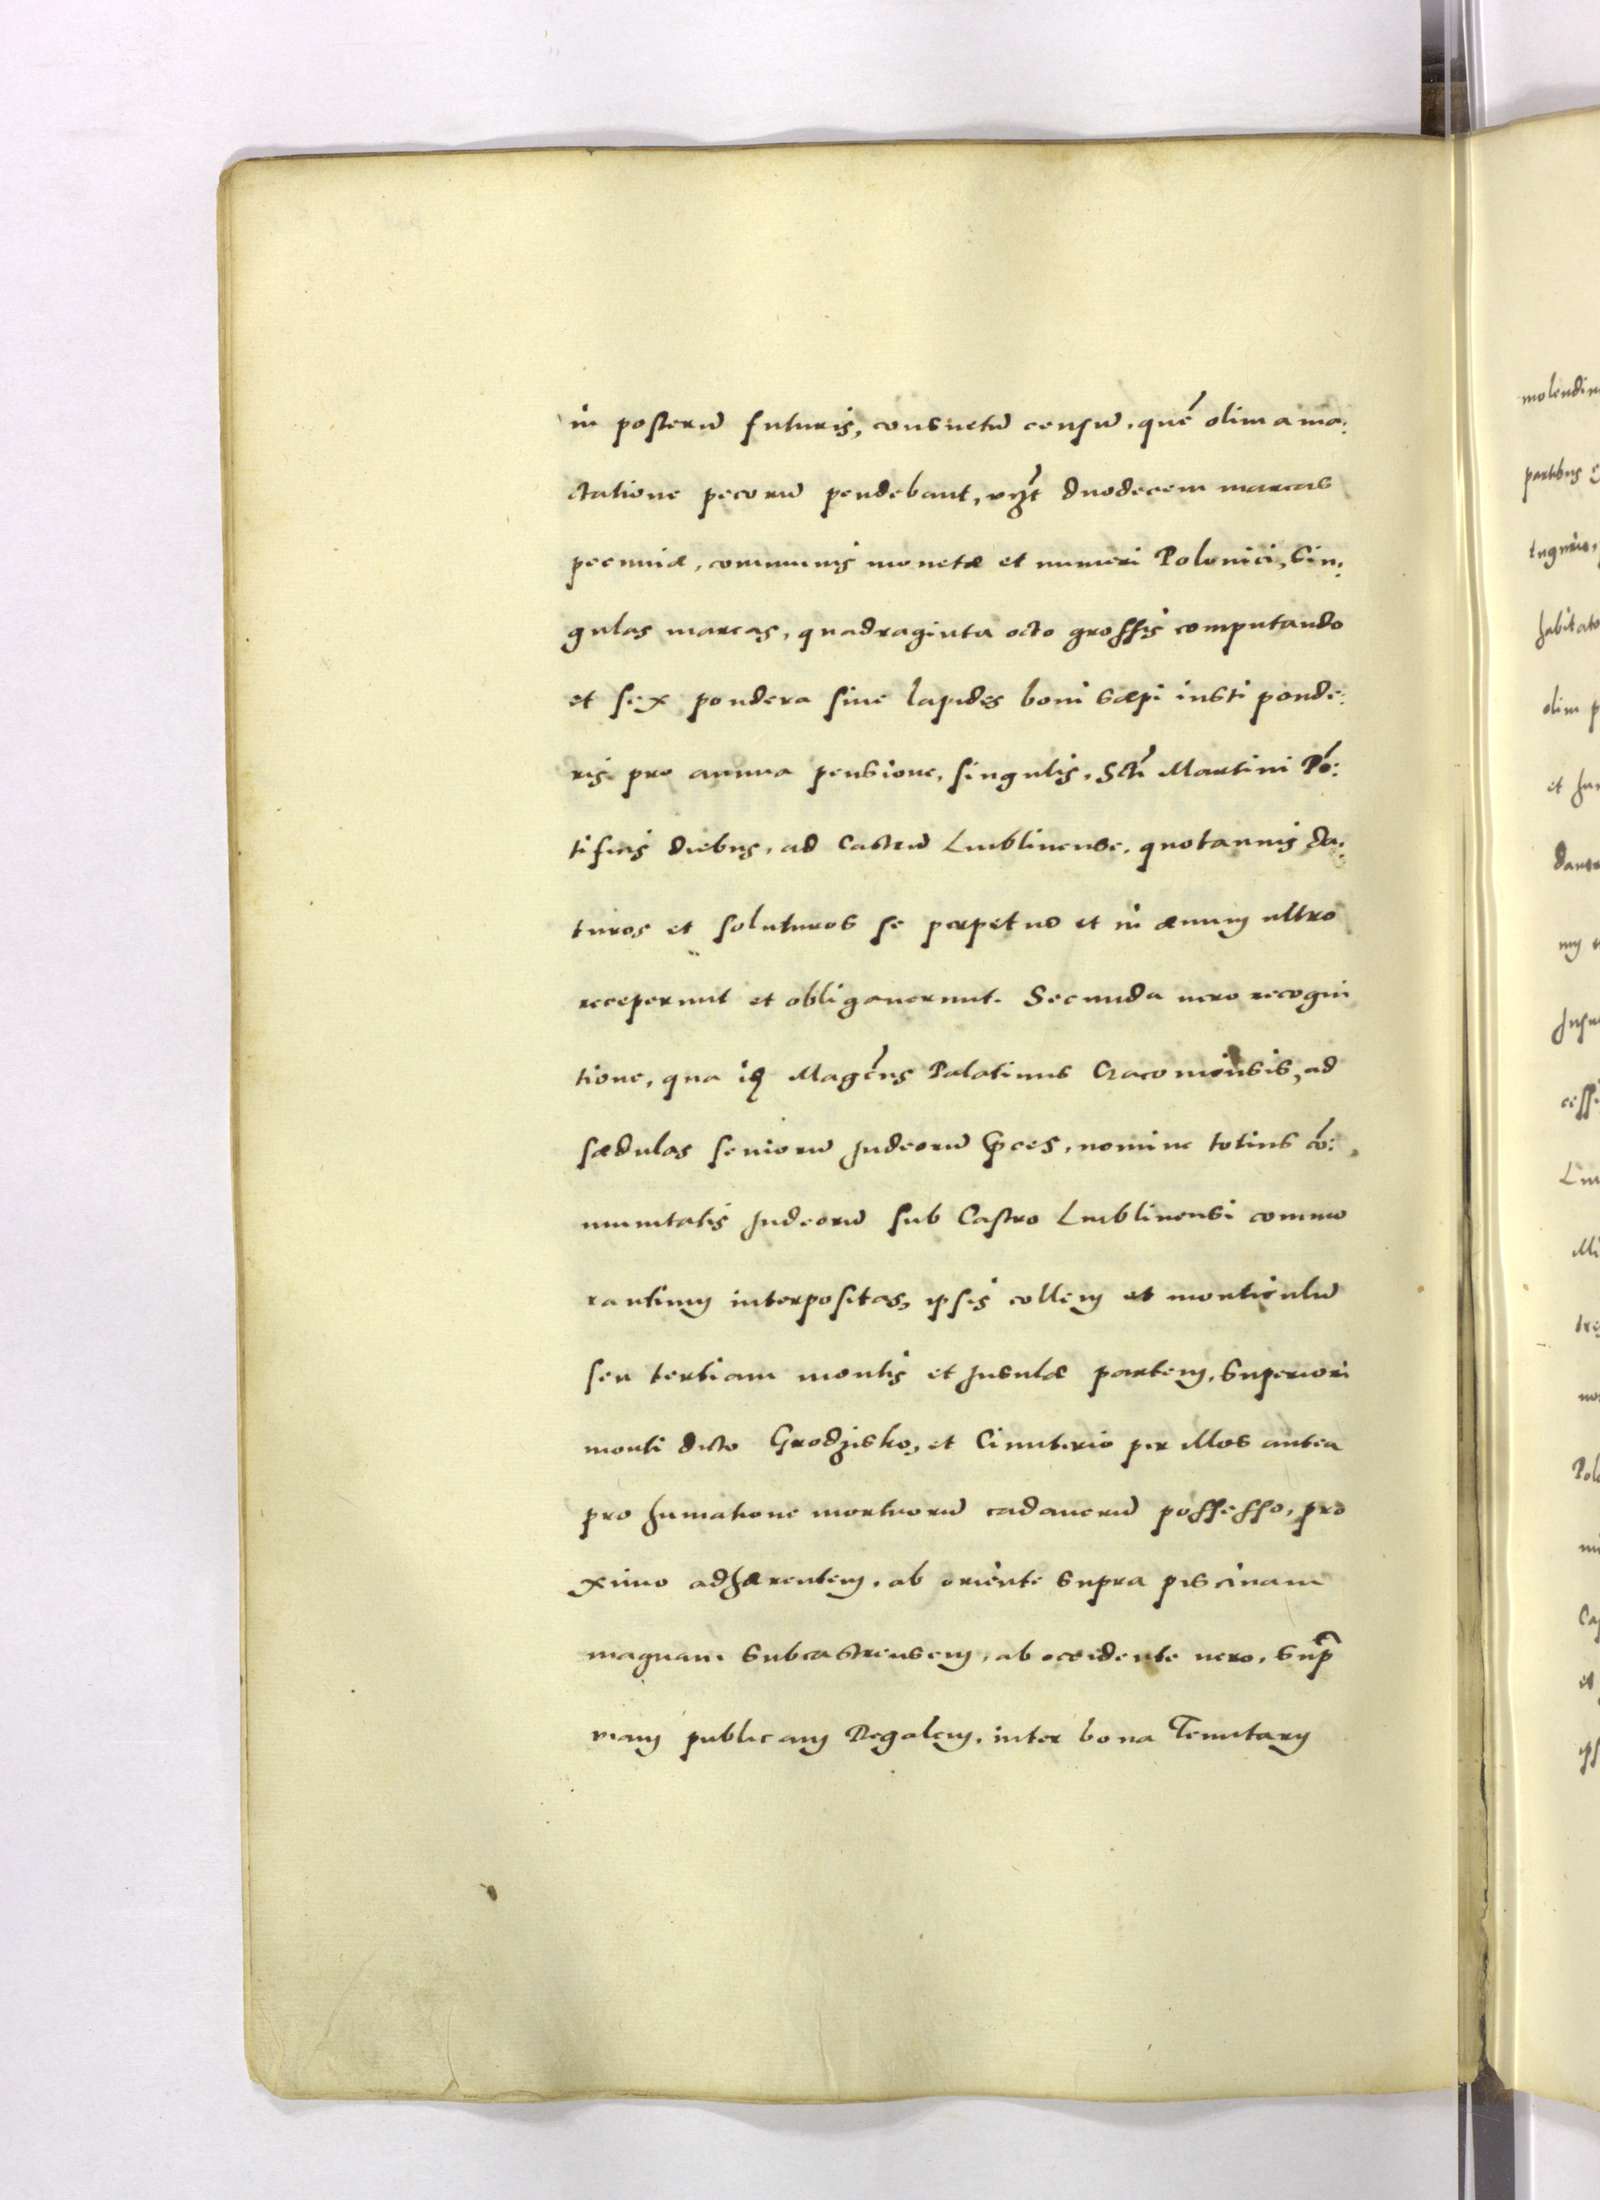 in posterū futuris, consuetū censū, quē olim a ma:
ctatione pecorū pendebant, vz̃t duodecem marcas
pecuniæ, communis monetæ et numeri Polonici, Sin:
gulas marcas, quadraginta octo grossis computando
et sex pondera siue lapides boni sæpi iusti ponde:
ris pro annua pensione, singulis, Sctĩ Martini Põ:
tificis diebus, ad Castrū Lublinense, quotannis da:
turos et soluturos se perpetuo et in æuum ultro
receperunt et obligauerunt. Secunda uero recogni
tione, qua idẽ Magcũs Palatinus Cracouiensis, ad
sædulas seniorū Judeorū p̃ces, nomine totius cõ:
munitatis Judeorū sub Castro Lublinensi commo
rantium interpositas, ipsis collem et monticulū
seu tertiam montis et Insulæ partem, superiori
monti dicto Grodzisko, et Cimiterio per illos antea
pro humatione mortuorū cadauerū possesso, pro
ximo adhærentem, ab oriente supra piscinam
magnam subcastrensem, ab occidente uero, sup̃
viam publicam Regalem, inter bona Tenutarij
molendin
partibus
tugurio,
habitato
olim p
et
Pol